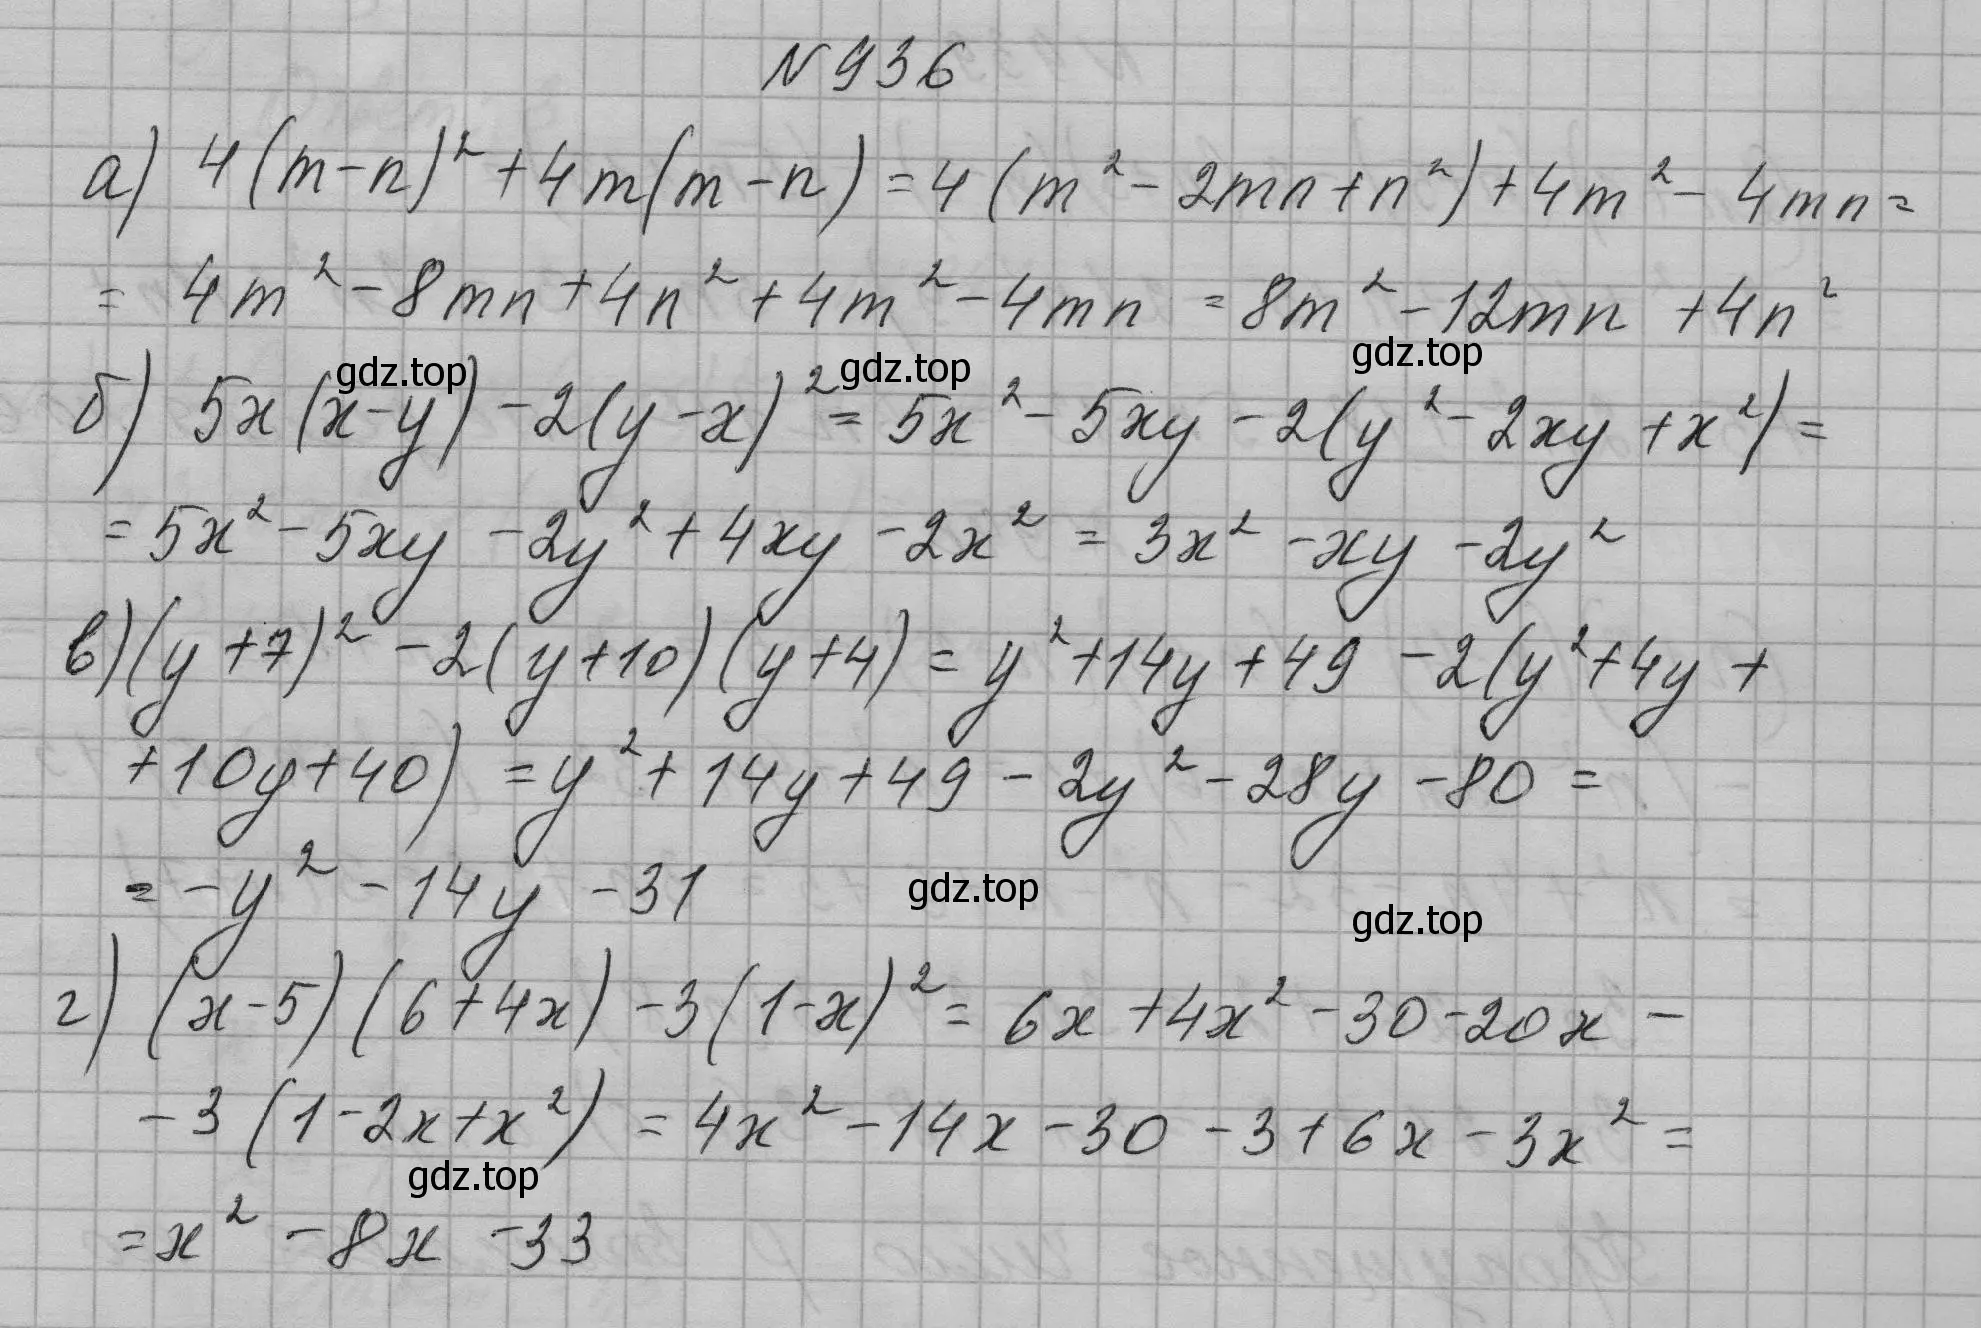 N 936
а) 4(m-n)² + 4m(m-n) = 4(m² - 2mn + n²) + 4m² - 4mn =
= 4m² - 8mn + 4n² + 4m² - 4mn = 8m² - 12mn + 4n²
gdz.top gdz.top gdz.top
б) 5x(x-y) - 2(y-x)² = 5x² - 5xy - 2(y² - 2xy + x²) =
= 5x² - 5xy - 2y² + 4xy - 2x² = 3x² - xy - 2y²
в) (y+7)² - 2(y+10)(y+4) = y² + 14y + 49 - 2(y² + 4y +
+ 10y + 40) = y² + 14y + 49 - 2y² - 28y - 80 =
= -y² - 14y - 31
gdz.top gdz.top
г) (x-5)(6+4x) - 3(1-x)² = 6x + 4x² - 30 - 20x -
- 3(1 - 2x + x²) = 4x² - 14x - 30 - 3 + 6x - 3x² =
gdz.top
= x² - 8x - 33